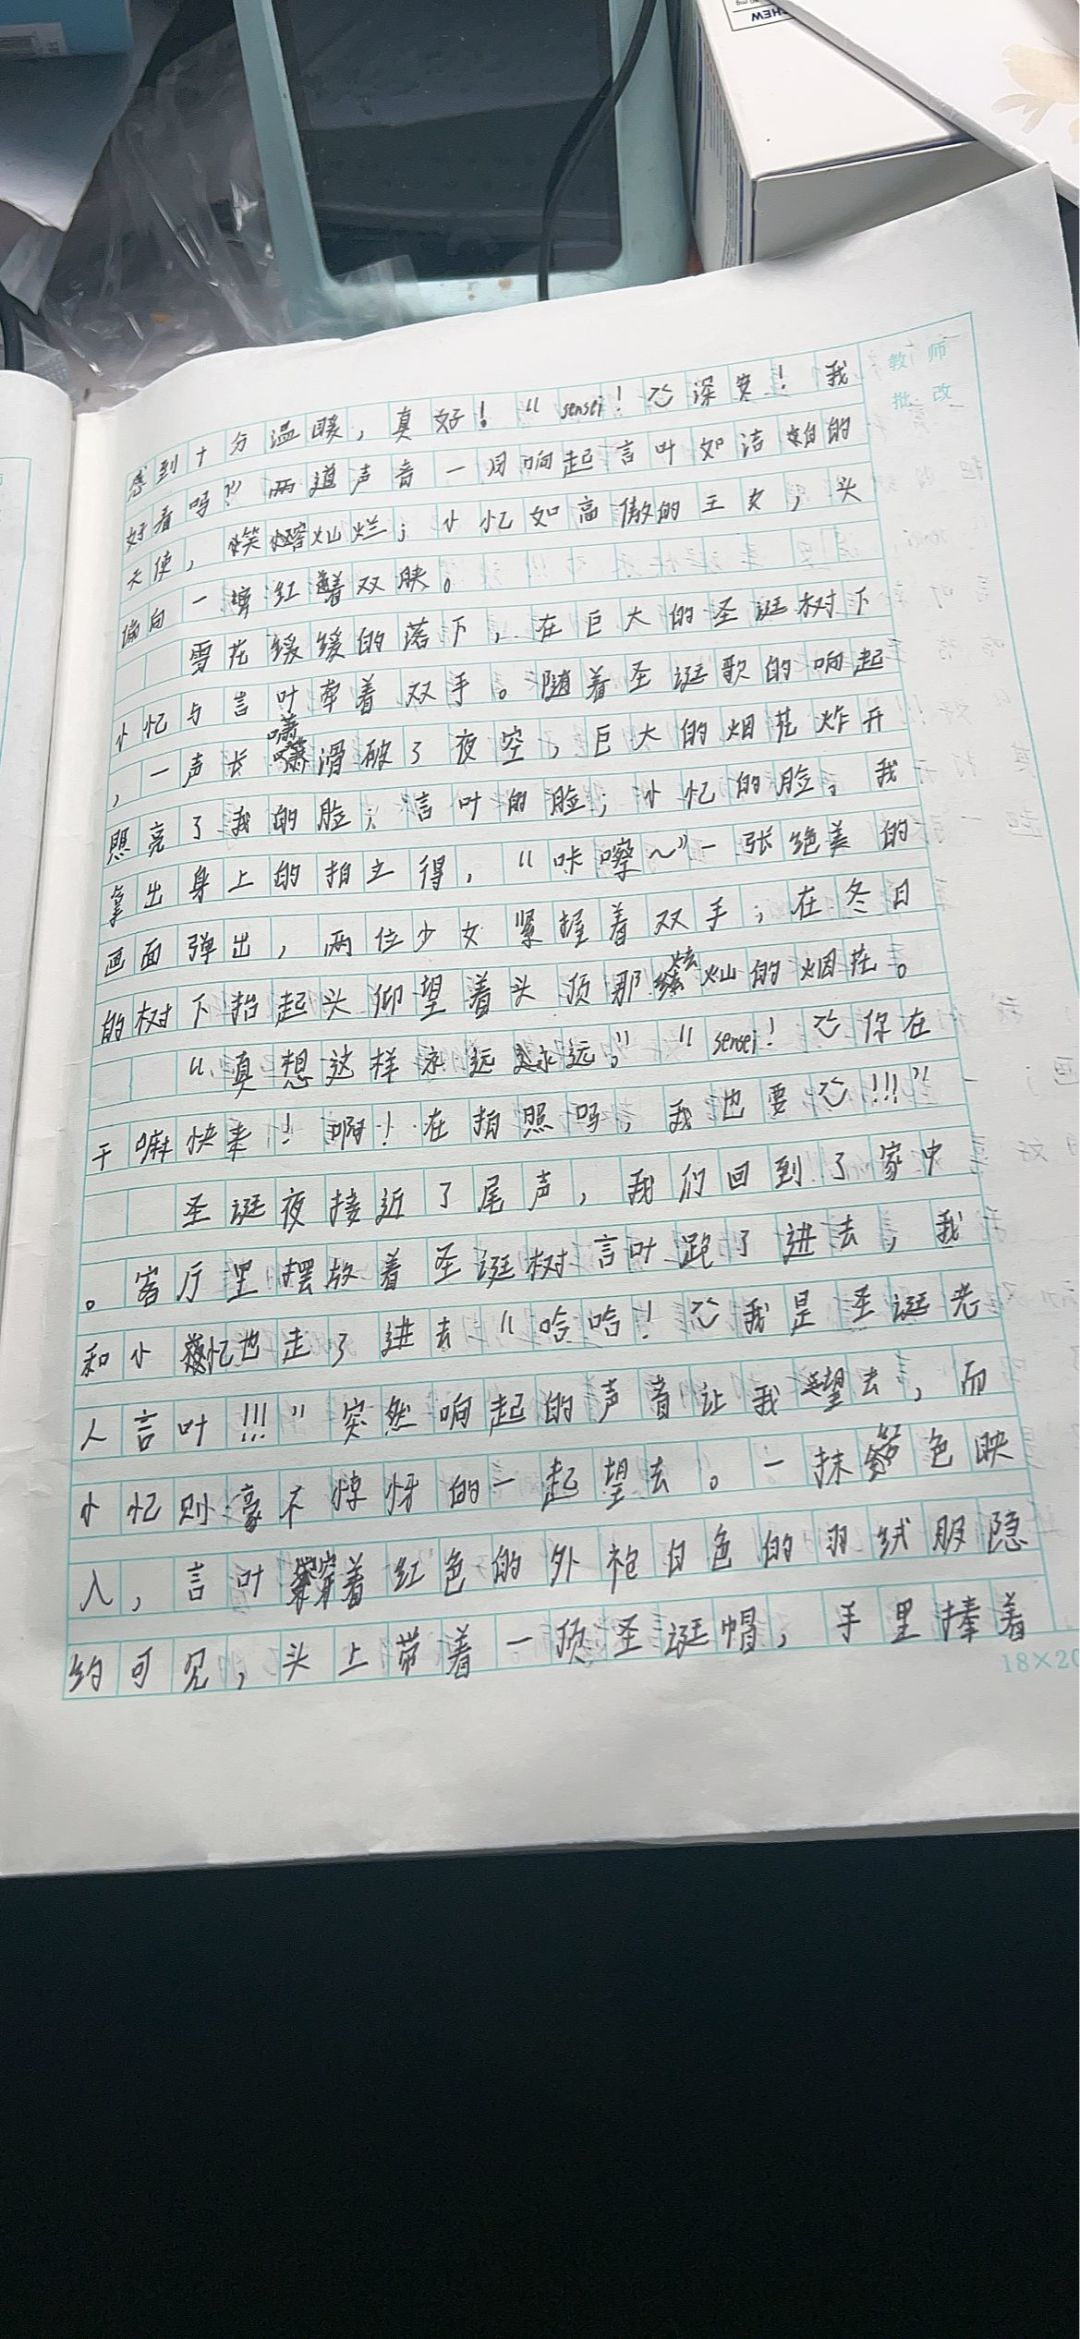 CHEW
教师
批改
感到十分温暖，真好！“sensei！深寒！我
好看吗？”两道声音一同响起言叶如洁白的
天使，笑容灿烂；小忆如高傲的王女，头
偏向一旁红着双眏。
雪花缓缓的落下，在巨大的圣诞树下
小忆与言叶牵着双手。随着圣诞歌的响起
，一声长啸滑破了夜空，巨大的烟花炸开
照亮了我的脸；言叶的脸；小忆的脸。我
拿出身上的拍立得，“咔嚓～”一张绝美的
画面弹出，两位少女紧握着双手；在冬日
的树下抬起头仰望着头顶那炫灿的烟花。
“真想这样永远永远。”“sensei！你在
干嘛快来！啊！在拍照吗，我也要!!!”
圣诞夜接近了尾声，我们回到了家中
。客厅里摆放着圣诞树言叶跑了进去，我
和小忆也走了进去“哈哈！我是圣诞老
人言叶!!!”突然响起的声音让我望去，而
小忆则毫不惊讶的一起望去。一抹色映
入，言叶穿着红色的外袍白色的羽绒服隐
约可见，头上带着一顶圣诞帽，手里捧着
18×20